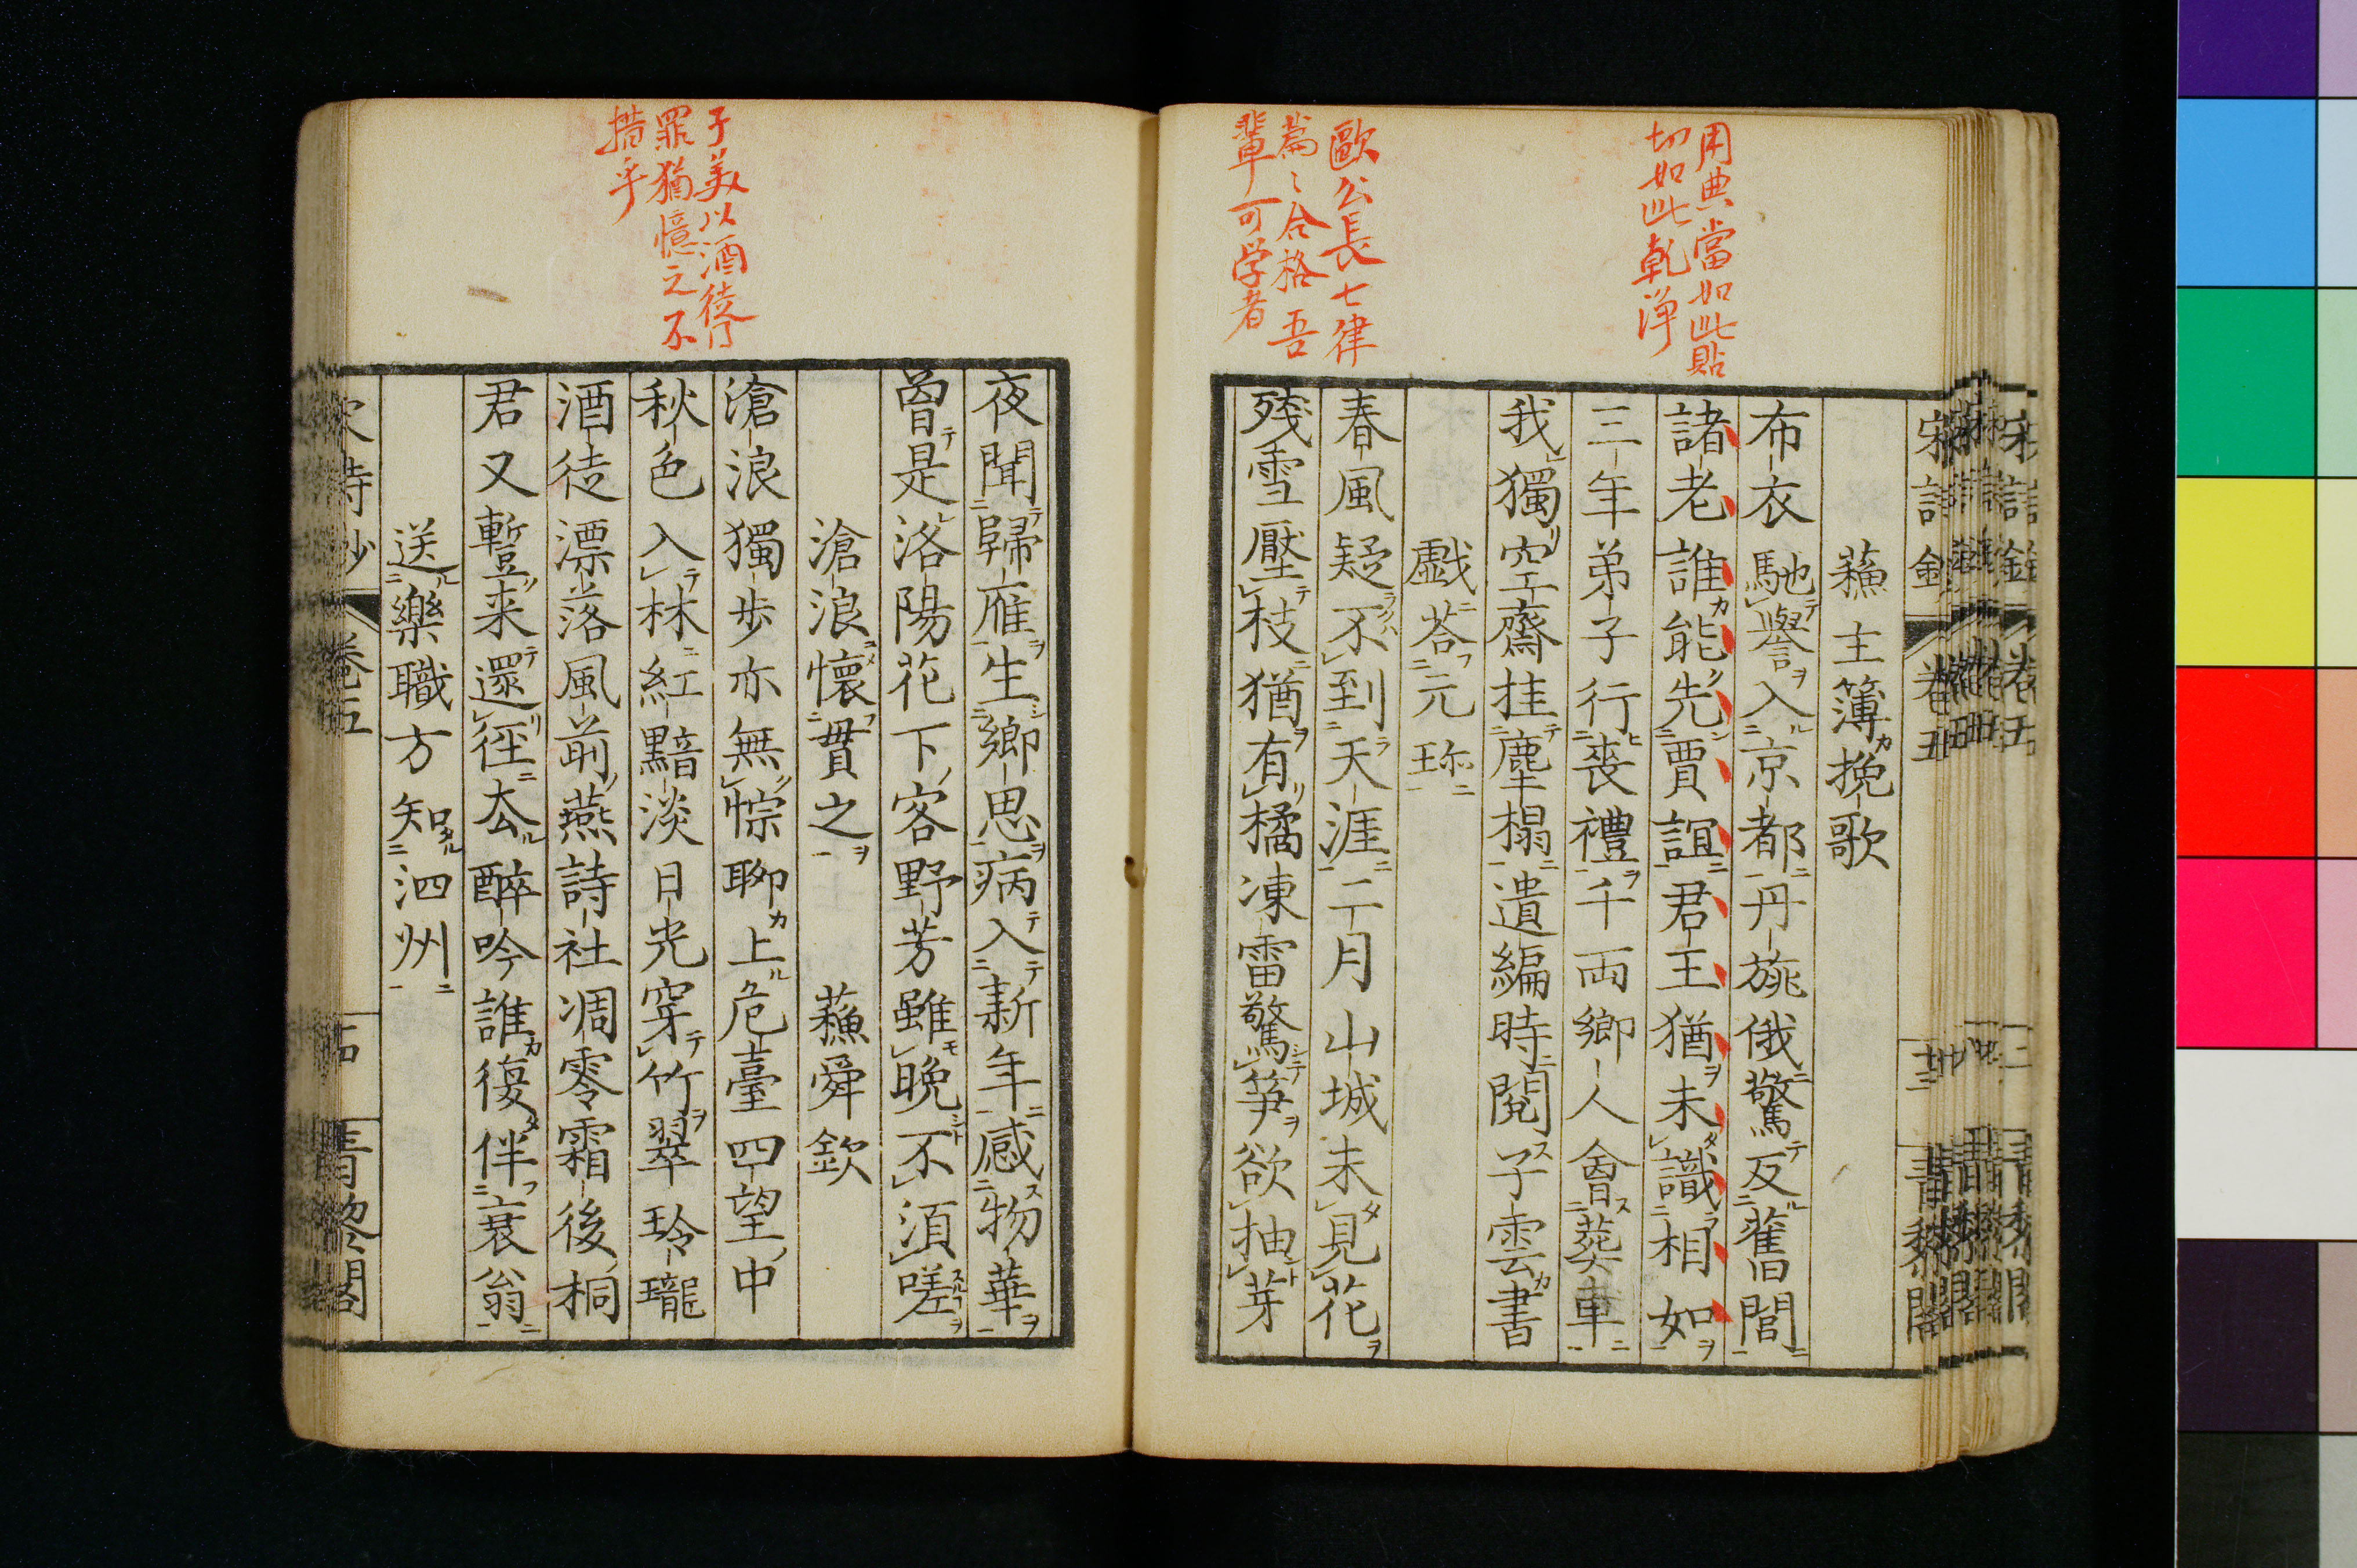 用典當如此貼
切如此乾淨
歐公長七律
篇〻合格吾
輩可学者
蘓主簿挽歌
布衣馳譽入京都丹旐俄驚反舊閭
諸老誰能先賈誼君王猶未識相如
三年弟子行喪禮千両鄉人會葬車
我獨空齋挂塵榻遺編時閱子雲書
戯荅元珎
春風疑不到天涯二月山城未見花
殘雪壓枝猶有橘凍雷驚笋欲抽芽
子美以酒徒
罪猶憶之不
措乎
夜聞歸雁生鄉思病入新年感物華
曾是洛陽花下客野芳雖晚不須嗟
滄浪懷貫之 蘓舜欽
滄浪獨步亦無悰聊上危臺四望中
秋色入林紅黯淡日光穿竹翠玲瓏
酒徒漂落風前燕詩社凋零霜後桐
君又蹔来還徑去醉吟誰復伴衰翁
送樂職方知泗州
卷五